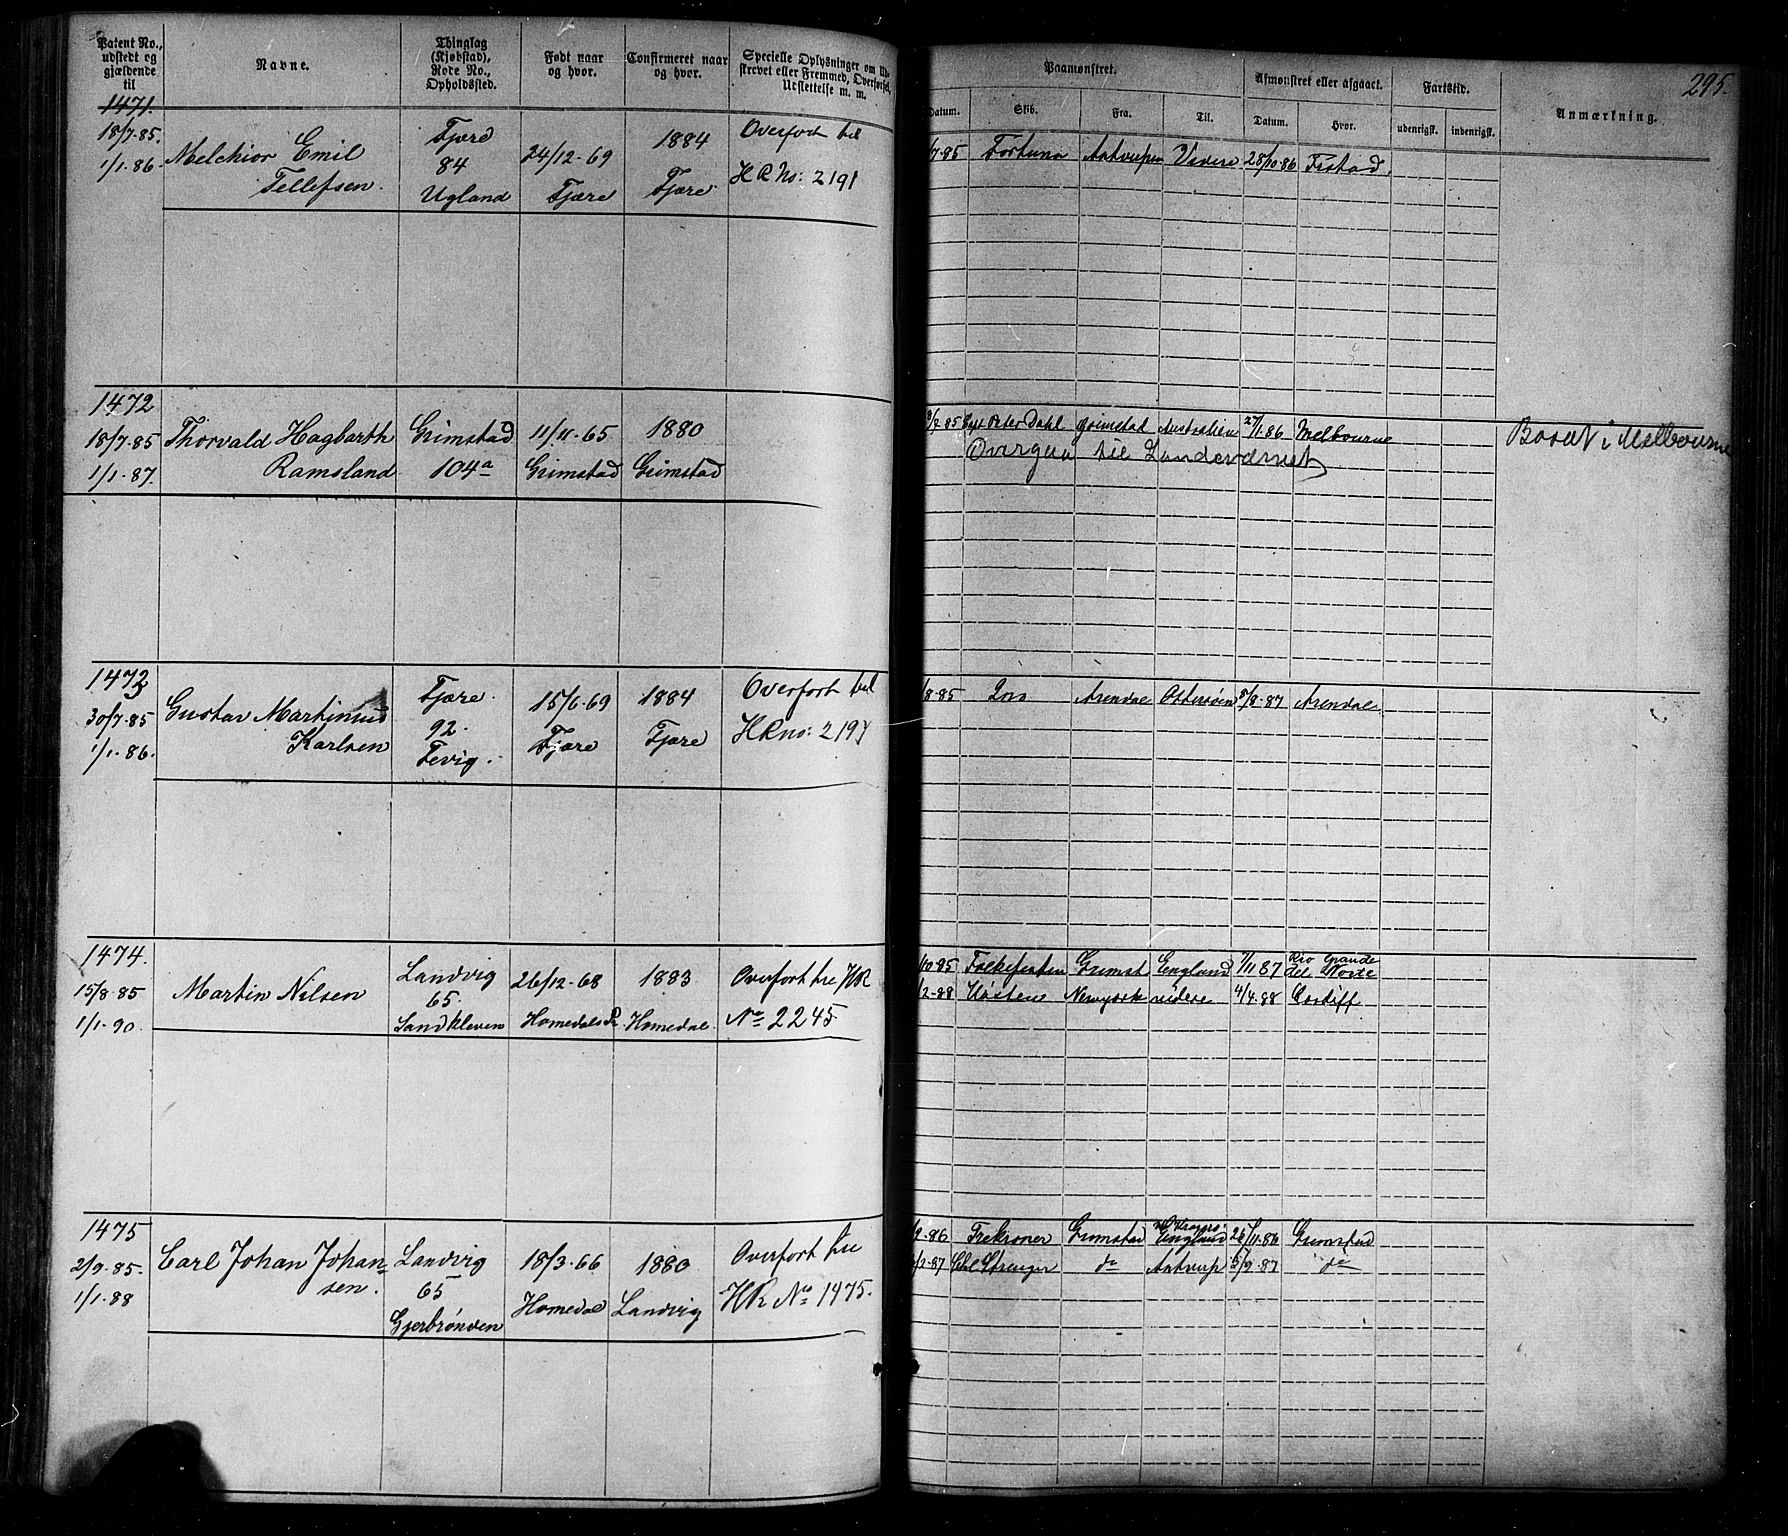 Patent No., udstedt og gjældende til
Navne.
Thinglag (Kjøbstad), Rode No., Opholdssted.
Født naar og hvor.
Confirmeret naar og hvor.
Specielle Oplysninger om
strevet eller Fremmed, Overførsel,
Udslettelse m. m.
Paamønstret.
Afmønstret eller afgaaet.
Fartstid.
Anmærkning.
295.
Datum.
Skib.
Fra.
Til.
Datum.
Hvor.
udenrigsk.
indenrigsk.
1471.
18/7.85.
1/1.86.
Melchior Emil
Tellefsen.
Fjære
84
Ugland
24/12-69
Fjære
1884
Fjære
Overført til
HR No: 2191
/7.85 Fortuna Antverpen Videre 28/10 86
1472
18/7.85
1/1.87.
Thorvald Hagbarth
Ramsland
Grimstad
104a
11/11-65
Grimstad
1880
Grimstad
/7.85 Peter Dahl Grimstad Australien 27/1 86 Melbourne
Overgaa til Landeværnet
i Melbourne
1473
30/7.85
1/1.86.
Gustav Martinius
Karlsen
Fjære.
92.
Fevig.
15/6.69
Fjære
1884
Fjære
Overført til
HR no: 2197
/8.85 Arendal 8.87 Arendal
1474.
15/8.85
1/1.90.
Martin Nilsen
Landvig
65.
Sandkleven
26/12.68
Homedals
1883
Homedal
Overført til HR
No 2245
/10.85 Folkefesten Grimst England 7/11 87 Rio Grande del Norte
/2-88 Høsten Newyork videre 4/4.88 Cardiff
1475
2/9.85.
1/1.88
Carl Johan Johan-
sen.
Landvig
65
Gjerbrønden
18/3.66
Homedal
1880
Landvig
Overført til
HR No 1475.
/9.86 Trekroner Grimstad England 26/11.86 Grimstad
/2.87 do Antverp 5/9.87 do